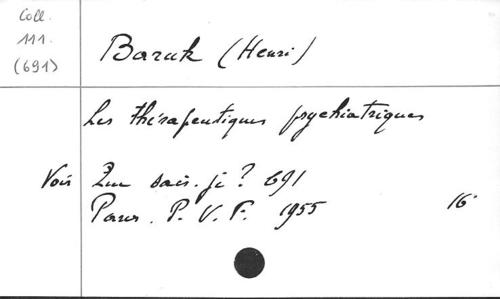 Coll.
111.
(691)
Baruk (Henri)
Les thérapeutiques psychiatriques
Voir Que sais-je ? 691
Paris. P. U. F. 1955 16°